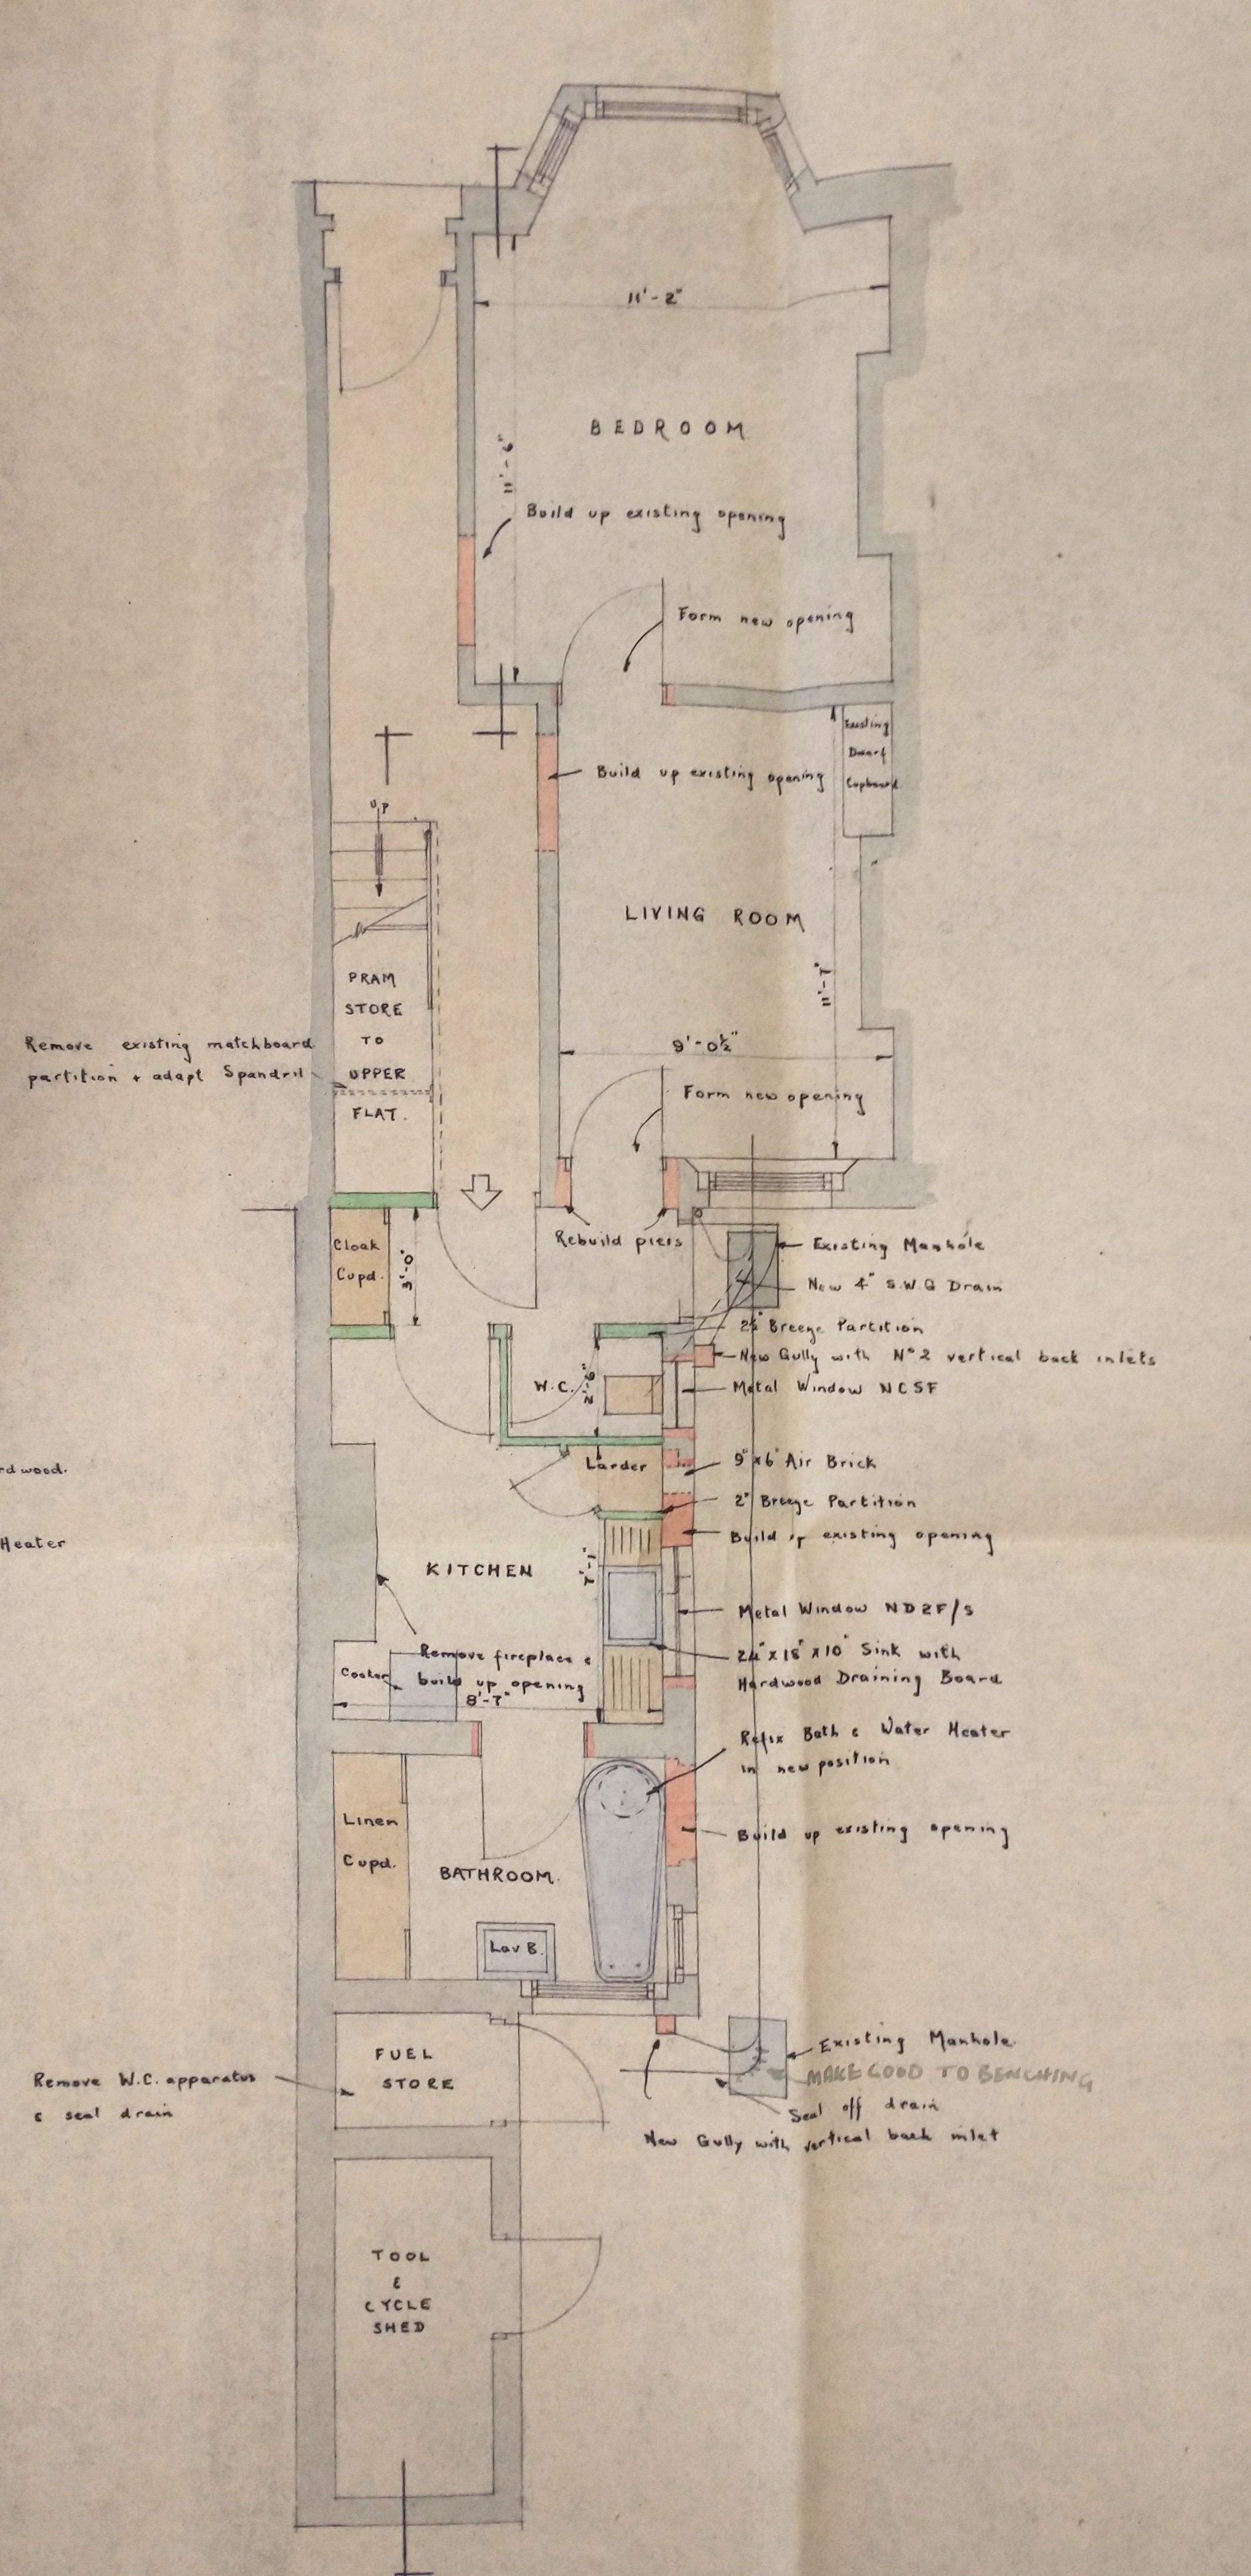 11'-2"
BEDROOM
11'-6"
Build up existing opening
Form new opening
Existing
Dwarf
Cupboard
Build up existing opening
UP
LIVING ROOM
11'-7"
PRAM
STORE
TO
UPPER
FLAT.
Remove existing matchboard
partition & adapt Spandril
9'-0½"
Form new opening
Rebuild piers
Cloak
Cupd.
3'-0"
Existing Manhole
New 4" S.W.G Drain
Breeze Partition
New Gully with No 2 vertical back inlets
W.C.
2'-6"
Metal Window NCSF
Larder
rdwood.
9"x6" Air Brick
2" Breeze Partition
Build up existing opening
Heater
KITCHEN
7'-1"
Metal Window ND2F/S
Remove fireplace &
build up opening
Cooker
8'-7"
24"x18"x10" Sink with
Hardwood Draining Board
Refix Bath & Water Heater
in new position
Linen
Cupd.
Build up existing opening
BATHROOM.
Lav B.
FUEL
STORE
Remove W.C. apparatus
& seal drain
Existing Manhole.
MAKE GOOD TO BENCHING
Seal off drain
New Gully with vertical back inlet
TOOL
&
CYCLE
SHED